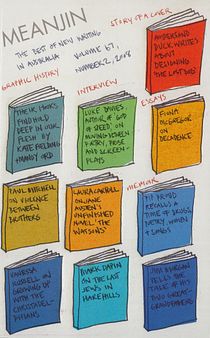 MEANJIN
THE BEST OF NEW WRITING
IN AUSTRALIA
VOLUME 67,
NUMBER 2, 2008
STORY OF A COVER
DUCK WRITES
ABOUT
DESIGNING
GRAPHIC HISTORY
THEIR HOOKS
FIND HOLD
DEEP IN OUR
FLESH BY
KATE FIELDING
+ MANDY ORD
INTERVIEW
LUKE DAVIES,
AUTHOR OF GOD
OF SPEED, ON
MOVING BETWEEN
POETRY, PROSE
AND SCREEN-
PLAYS
ESSAYS
FIONA
McGREGOR
ON
DECADENCE
PAUL MITCHELL
ON VIOLENCE
BETWEEN
BROTHERS
LAURA CARROLL
ON JANE
AUSTEN'S
UNFINISHED
NOVEL 'THE
WATSONS'
MEMOIR
RECALLS A
TIME OF DRUGS,
POETRY, WOMEN
+ SONGS
VANESSA
RUSSELL ON
GROWING UP
WITH THE
CHRISTADEL-
PHIANS
MARK DAPIN
ON THE LAST
JEWS IN
HAREHILLS
TELLS THE
TALE OF HIS
TWO GREAT-
GRANDFATHERS